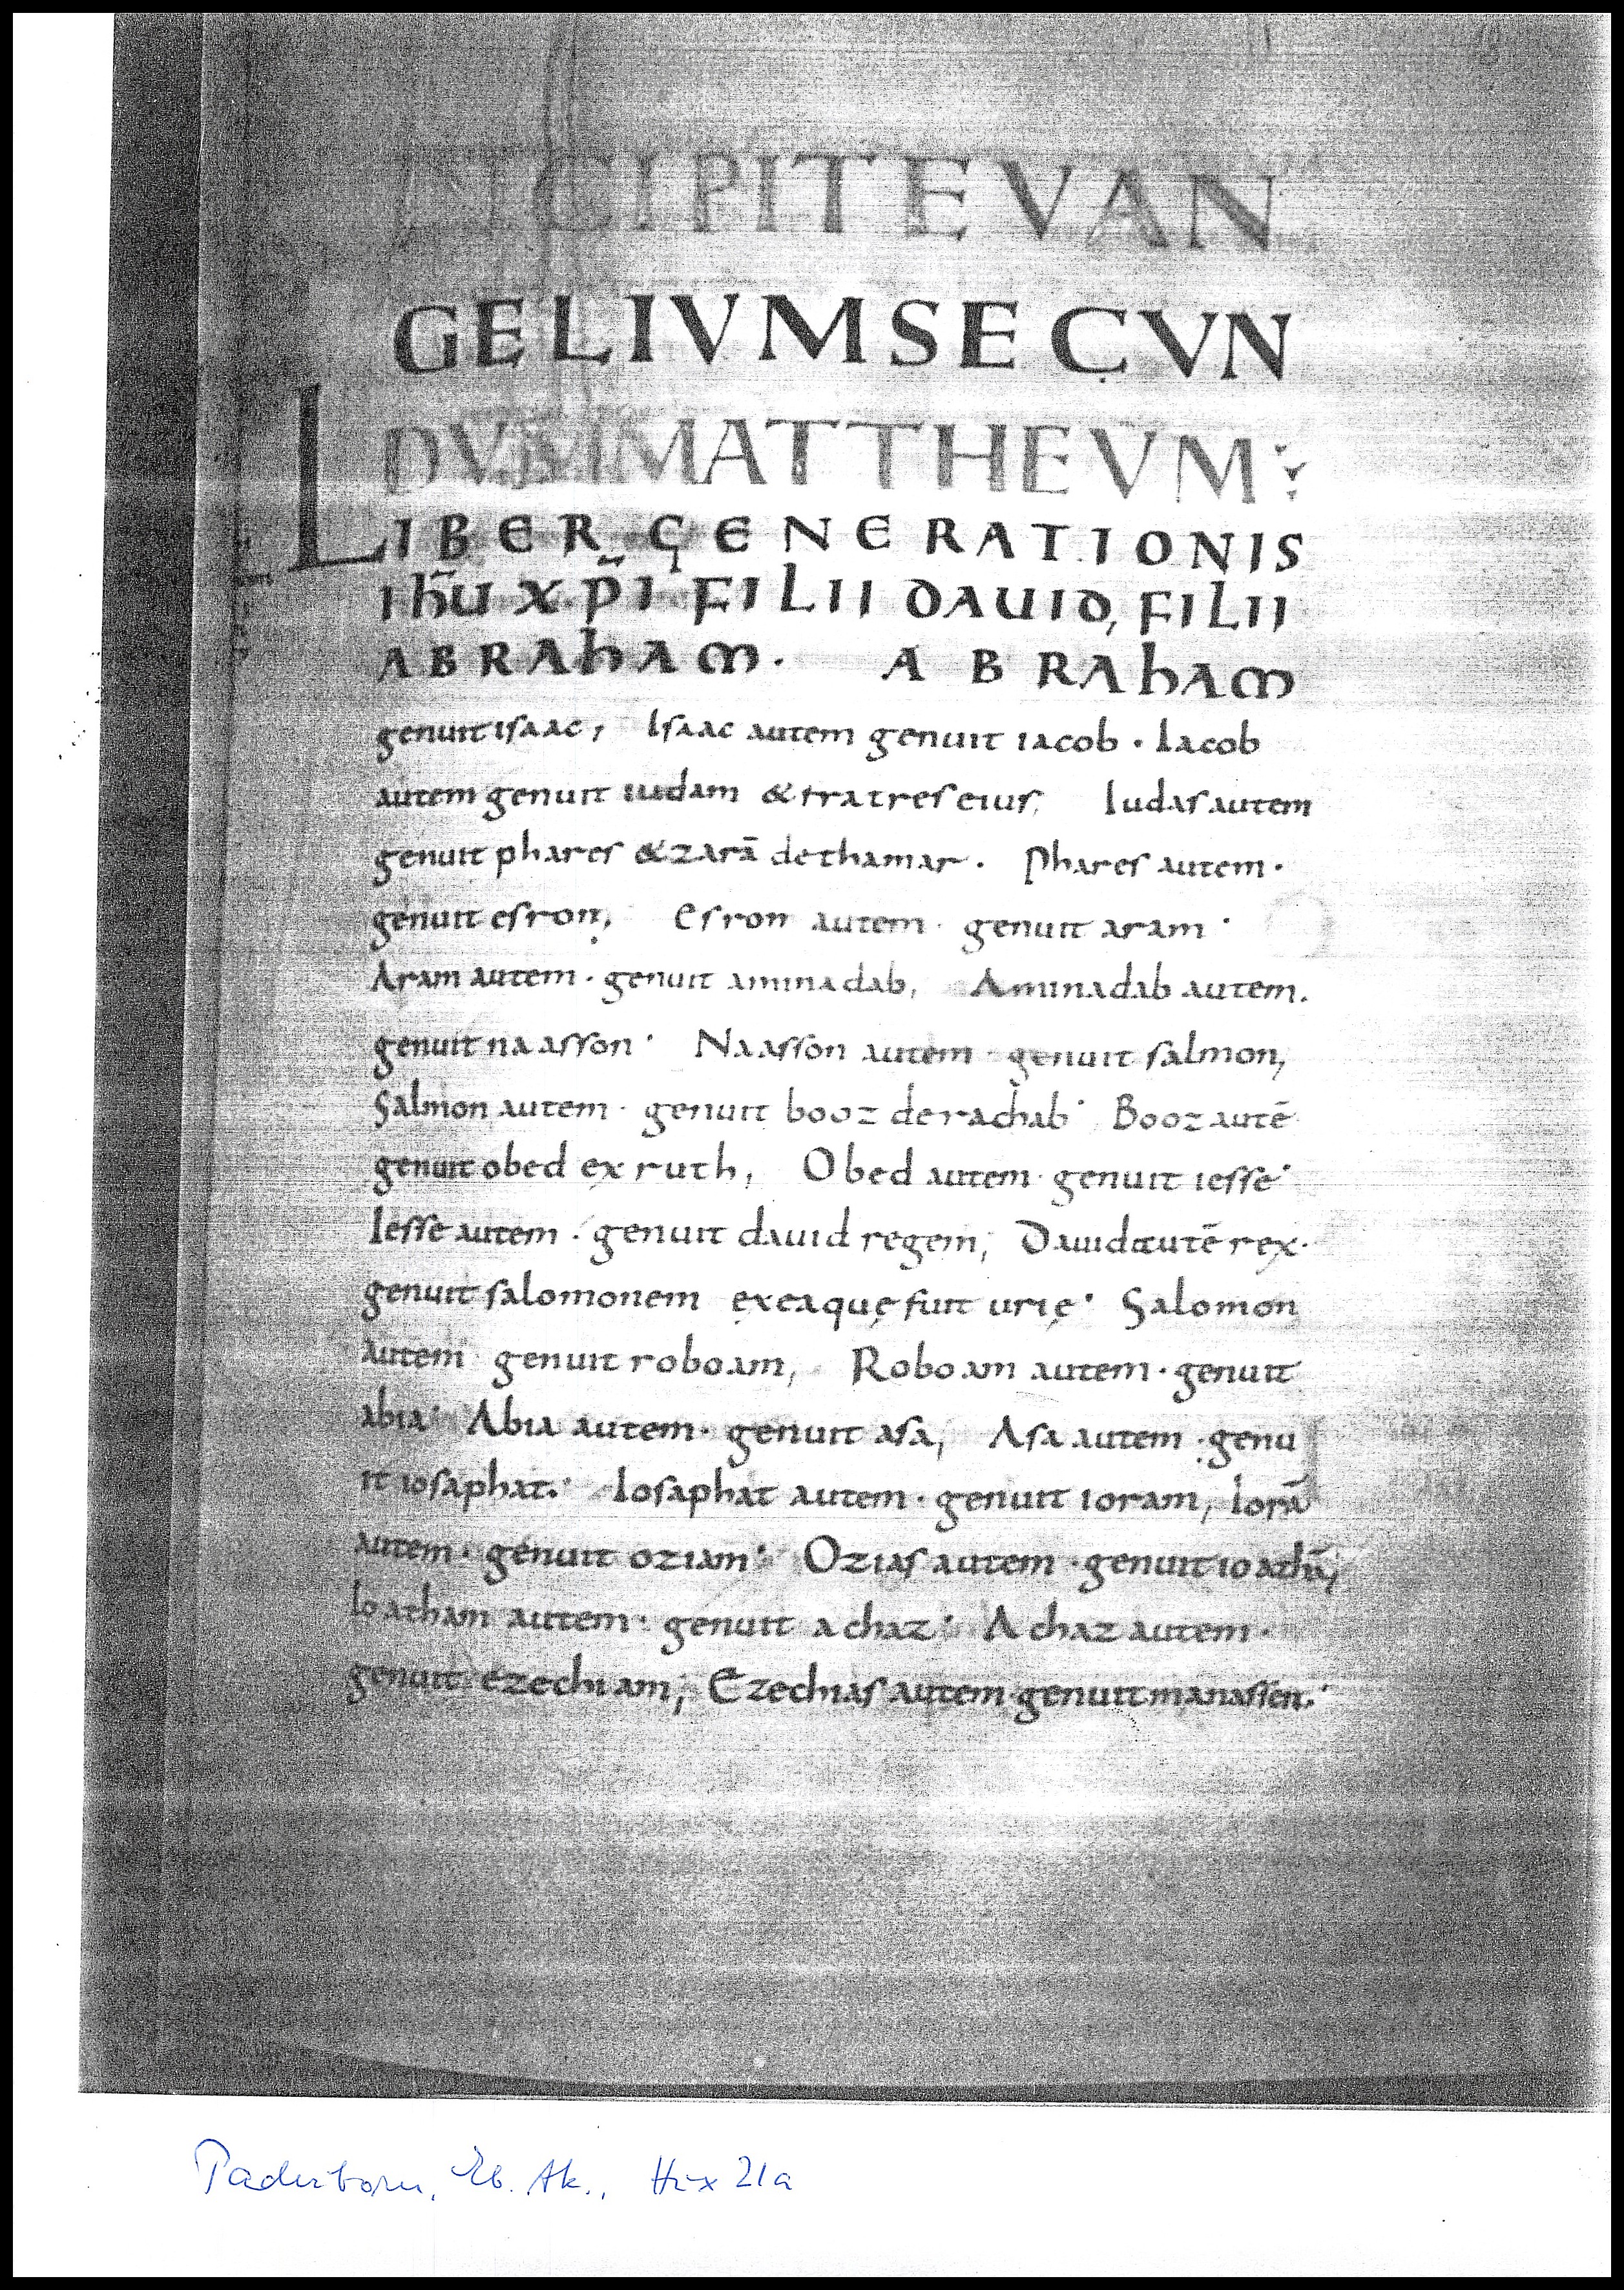 INCIPIT EVAN
GELIUM SECUN
DUM MATTHEUM
LIBER GENERATIONIS
IHU XPI FILII DAUID, FILII
ABRAHAM. ABRAHAM
genuit isaac, Isaac autem genuit iacob. Iacob
autem genuit iudam & fratres eius, Iudas autem
genuit phares & zarā de thamar. Phares autem.
genuit esron, Esron autem. genuit aram.
Aram autem. genuit aminadab, Aminadab autem.
genuit naasson. Naasson autem. genuit salmon,
Salmon autem. genuit booz de rachab. Booz autē
genuit obed ex ruth, Obed autem. genuit iesse.
Iesse autem. genuit dauid regem; Dauid autē rex.
genuit salomonem ex ea quę fuit urię. Salomon
autem genuit roboam, Roboam autem. genuit
abia. Abia autem. genuit asa, Asa autem. genu
it iosaphat. Iosaphat autem. genuit ioram, Iorā
autem. genuit oziam. Ozias autem. genuit ioathā,
Ioatham autem. genuit achaz. Achaz autem.
genuit ezechiam; Ezechias autem genuit manassen.
Paderborn, Eb. Ak., Hux 21a